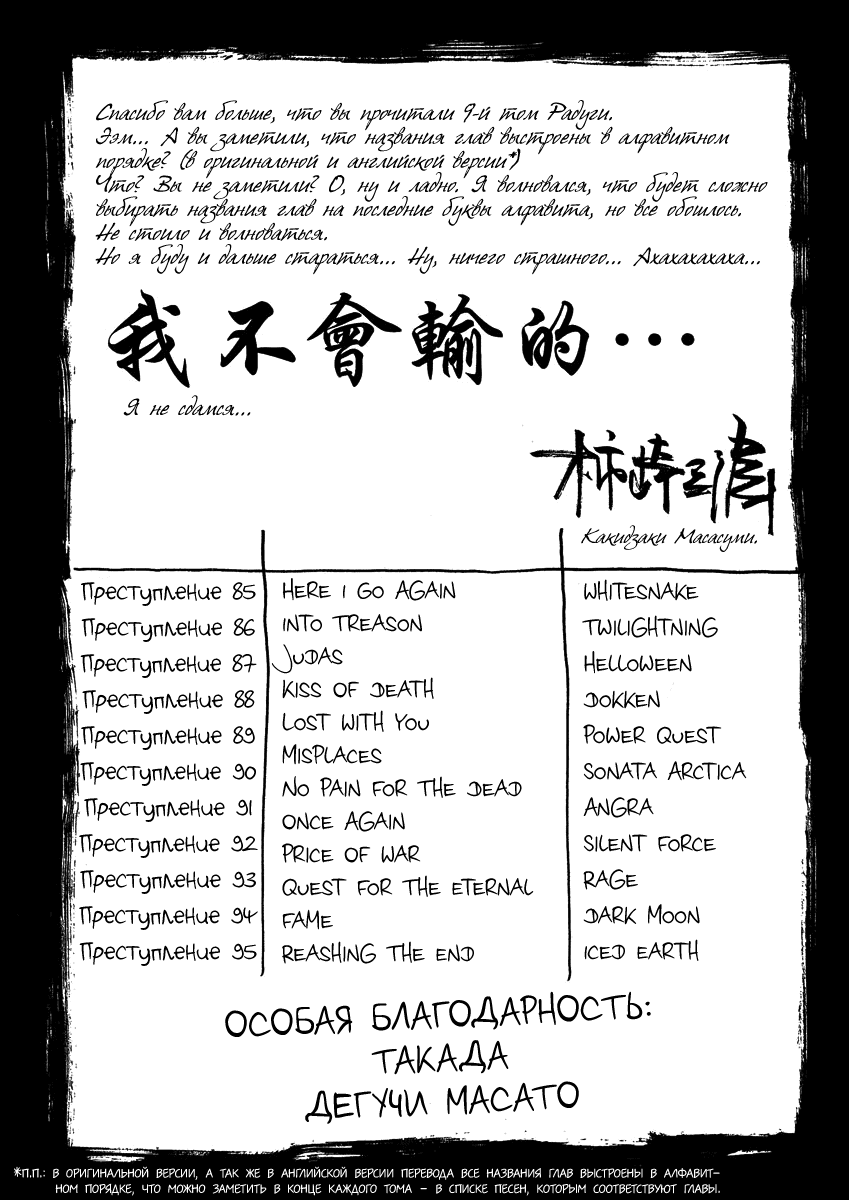 Спасибо вам больше, что вы прочитали 9-й том Радуги.
Ээм... А вы заметили, что названия глав выстроены в алфавитном
порядке? (в оригинальной и английской версии*)
Что? Вы не заметили? О, ну и ладно. Я волновался, что будет сложно
выбирать названия глав на последние буквы алфавита, но всё обошлось.
Не стоило и волноваться.
Но я буду и дальше стараться... Ну, ничего страшного... Ахахахахаха...
我不會輸的...
Я не сдамся...
柿崎正澄
Какидзаки Масасуми.
Преступление 85 HERE I GO AGAIN WHITESNAKE
Преступление 86 INTO TREASON TWILIGHTNING
Преступление 87 JUDAS HELLOWEEN
Преступление 88 KISS OF DEATH DOKKEN
Преступление 89 LOST WITH YOU POWER QUEST
Преступление 90 MISPLACES SONATA ARCTICA
Преступление 91 NO PAIN FOR THE DEAD ANGRA
Преступление 92 ONCE AGAIN SILENT FORCE
Преступление 93 PRICE OF WAR RAGE
Преступление 94 QUEST FOR THE ETERNAL
FAME DARK MOON
Преступление 95 REASHING THE END ICED EARTH
ОСОБАЯ БЛАГОДАРНОСТЬ:
ТАКАДА
ДЕГУЧИ МАСАТО
*П.П.: В ОРИГИНАЛЬНОЙ ВЕРСИИ, А ТАК ЖЕ В АНГЛИЙСКОЙ ВЕРСИИ ПЕРЕВОДА ВСЕ НАЗВАНИЯ ГЛАВ ВЫСТРОЕНЫ В АЛФАВИТ-
НОМ ПОРЯДКЕ, ЧТО МОЖНО ЗАМЕТИТЬ В КОНЦЕ КАЖДОГО ТОМА - В СПИСКЕ ПЕСЕН, КОТОРЫМ СООТВЕТСТВУЮТ ГЛАВЫ.